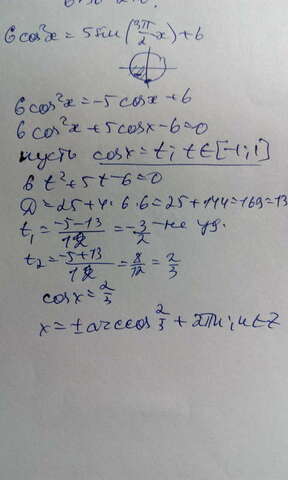 6cos²x = 5sin(3π/2 - x) + 6
6cos²x = -5cosx + 6
6cos²x + 5cosx - 6 = 0
пусть cosx = t; t∈[-1;1]
6t² + 5t - 6 = 0
D = 25 + 4·6·6 = 25 + 144 = 169 = 13
t₁ = (-5-13)/12 = -3/2 - не уд.
t₂ = (-5+13)/12 = 8/12 = 2/3
cosx = 2/3
x = ± arccos 2/3 + 2πn; n∈Z